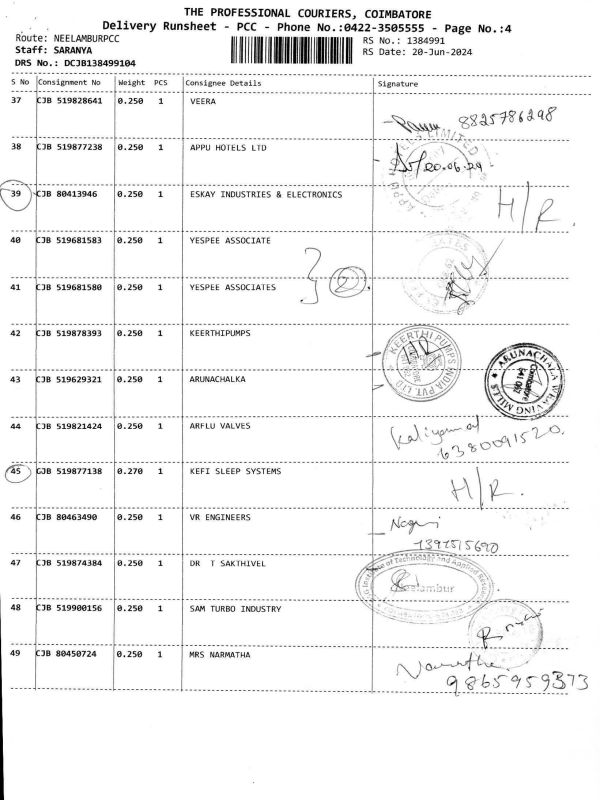 THE PROFESSIONAL COURIERS, COIMBATORE
Delivery Runsheet - PCC - Phone No.:0422-3505555 - Page No.:4
Route: NEELAMBURPCC
RS No.: 1384991
Staff: SARANYA
RS Date: 20-Jun-2024
DRS No.: DCJB138499104
S No Consignment No Weight PCS Consignee Details Signature
37 CJB 519828641 0.250 1 VEERA
8825786298
38 CJB 519877238 0.250 1 APPU HOTELS LTD
20.06.24
APPU HOTELS LIMITED
39 CJB 80413946 0.250 1 ESKAY INDUSTRIES & ELECTRONICS H/R.
40 CJB 519681583 0.250 1 YESPEE ASSOCIATE
2
41 CJB 519681580 0.250 1 YESPEE ASSOCIATES
42 CJB 519878393 0.250 1 KEERTHIPUMPS
KEERTHI PUMPS INDIA PVT. LTD
43 CJB 519629321 0.250 1 ARUNACHALKA
ARUNACHALA WEAVING MILLS
Coimbatore
641 062
44 CJB 519821424 0.250 1 ARFLU VALVES
Kaliyammal
6380091520.
45 GJB 519877138 0.270 1 KEFI SLEEP SYSTEMS H/R.
46 CJB 80463490 0.250 1 VR ENGINEERS
47 CJB 519874384 0.250 1 DR T SAKTHIVEL
Institute of Technology and Applied Research
Neelambur
48 CJB 519900156 0.250 1 SAM TURBO INDUSTRY
49 CJB 80450724 0.250 1 MRS NARMATHA
Narmatha
9865959373